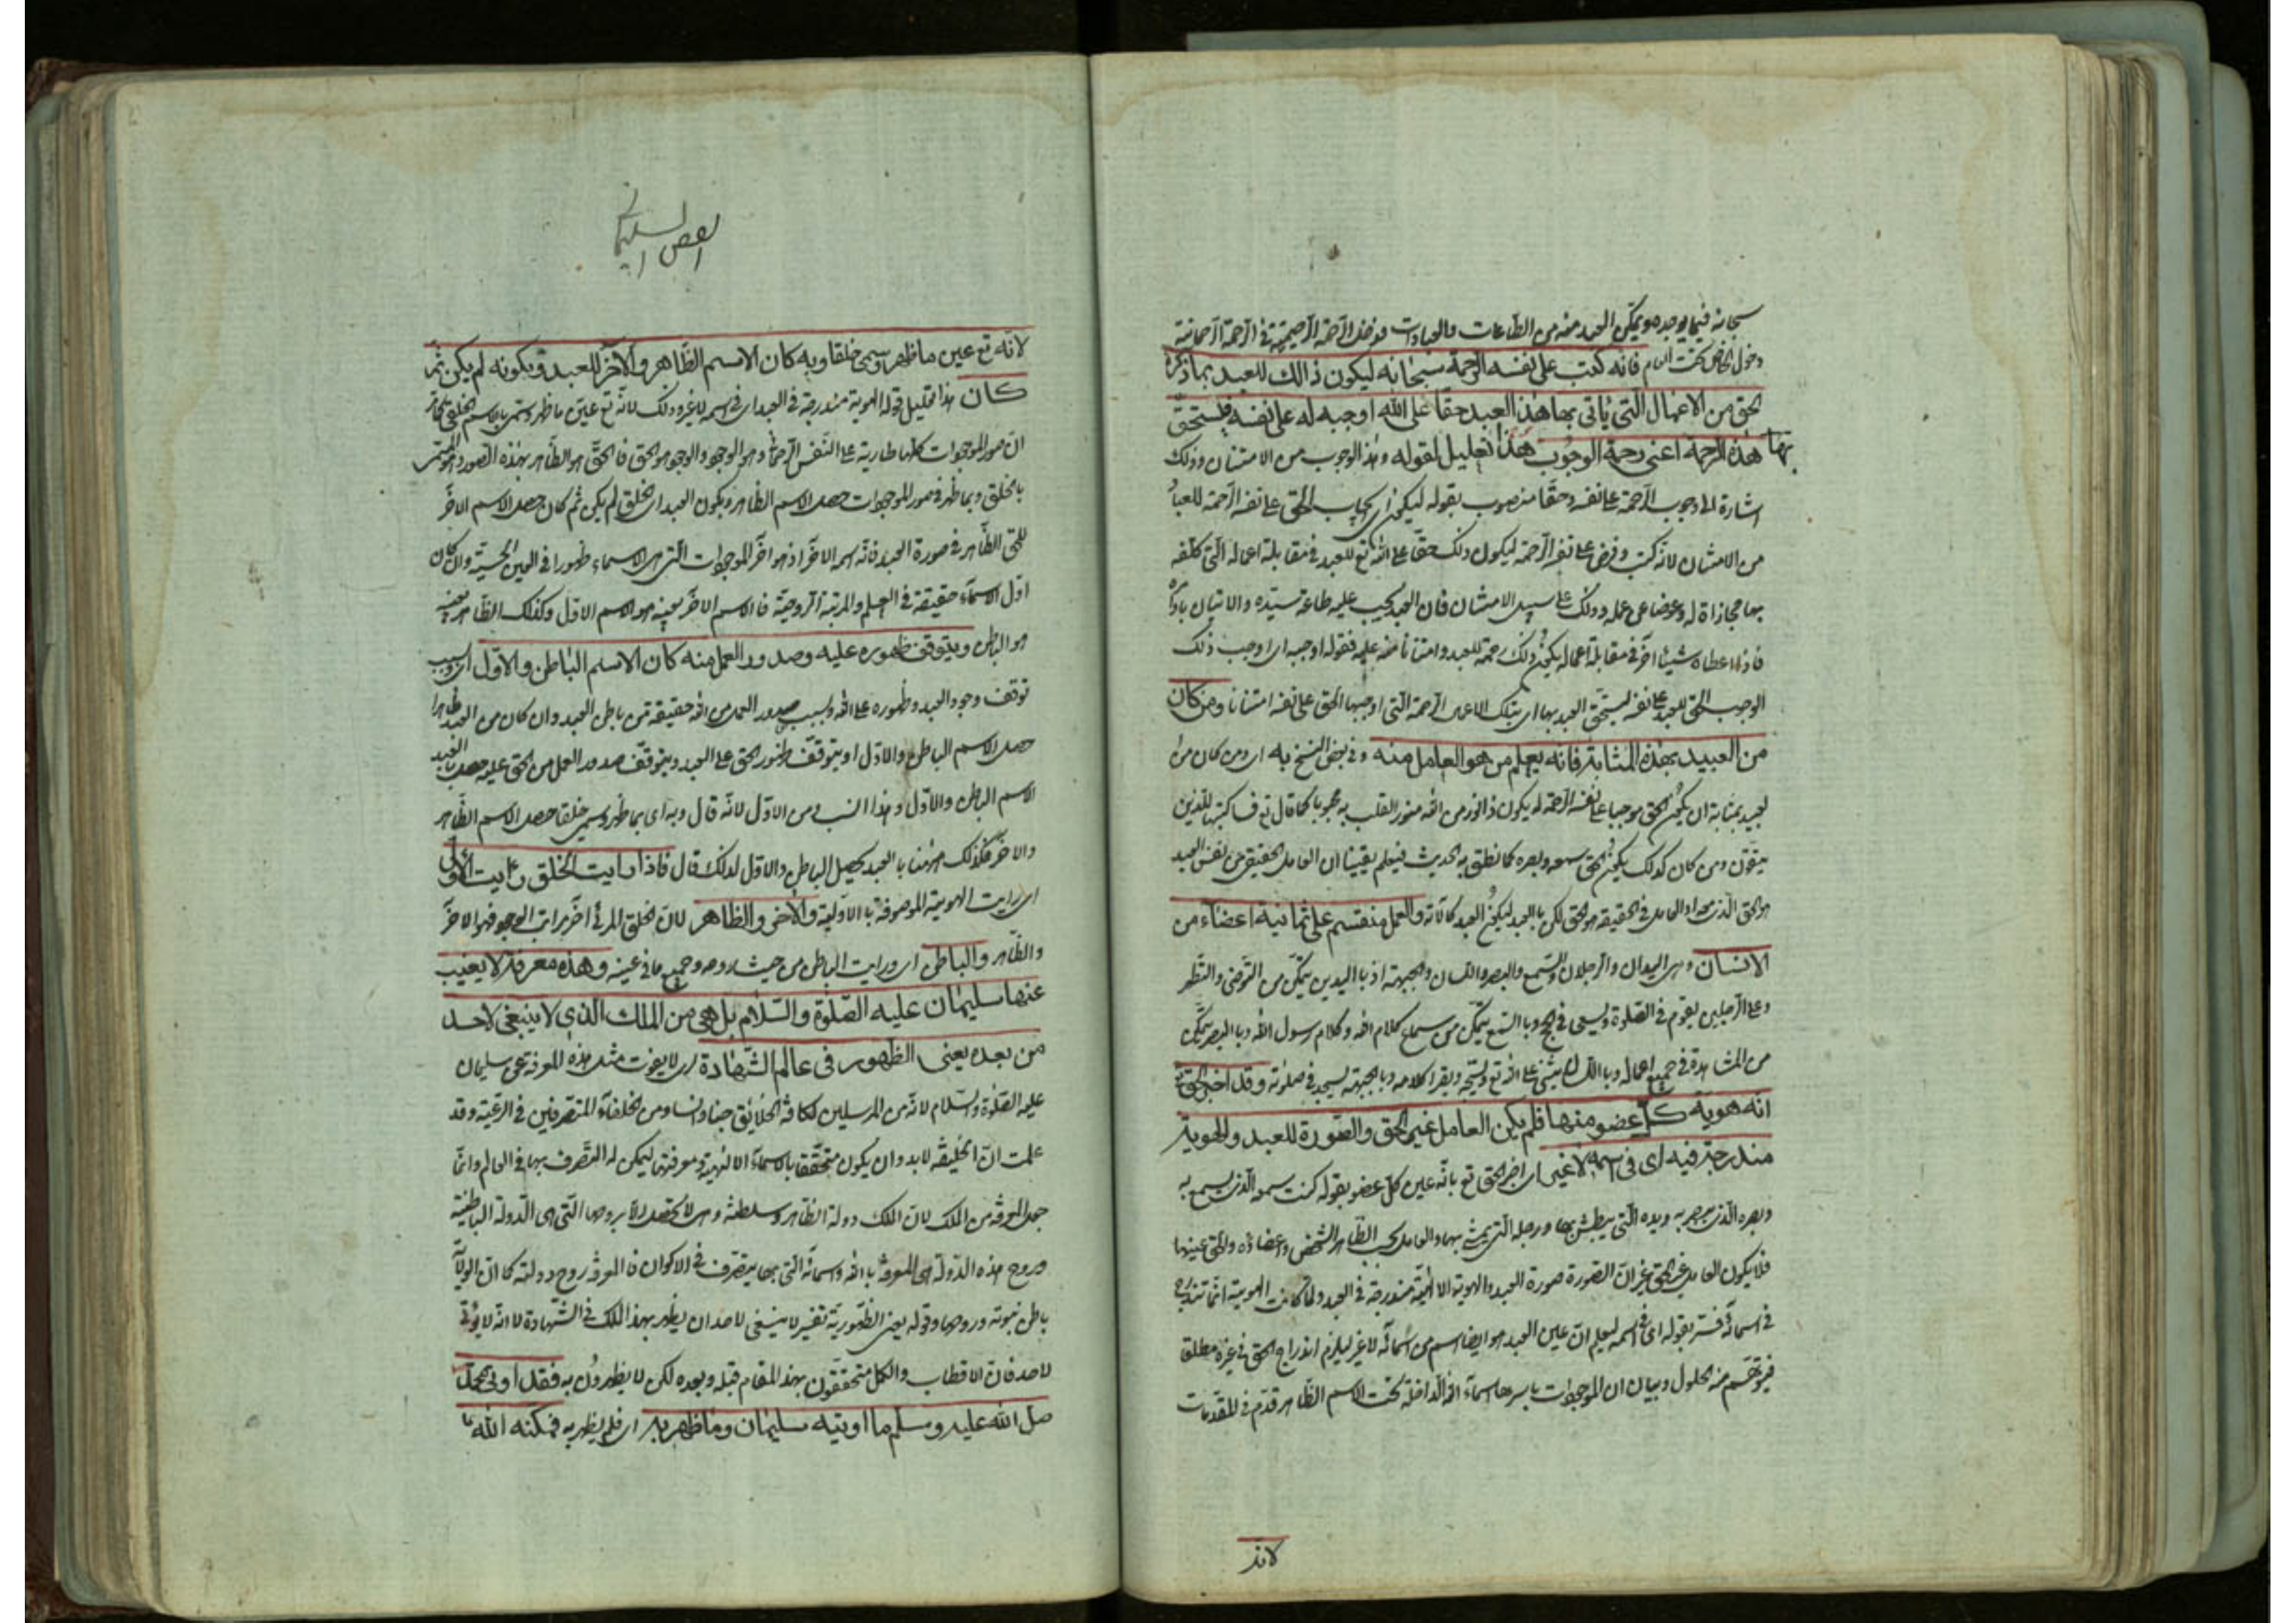 سبحانه فيما يوجده ويمكن العبد منه من الطاعات والعبادات فدخل الرحمة الرحيمية في الرحمة الرحمانية
دخول الخاص تحت العام فانه كتب على نفسه الرحمة سبحانه ليكون ذالك للعبد بما ذكره
الحق من الاعمال التي ياتي بها هذا العبد حقا على الله اوجبه له على نفسه فيستحق
بها هذه الرحمة اعني رحمة الوجوب هذا تعليل لقوله وهذا الوجوب من الامتنان وذلك
اشارة الى وجوب الرحمة على نفسه وحقا منصوب بقوله ليكون اي ايجاب الحق على نفسه الرحمة للعباد
من الامتنان لانه كتب وفرض على نفسه الرحمة ليكون ذلك حقا على الله تع للعبد في مقابلة اعماله التي كلفه
بها مجازاة له وعوضا عن عمله وذلك على سبيل الامتنان فان العبد يجب عليه طاعة سيده والاتيان باوامره
فاذا اعطاه شيئا اخر في مقابلة اعماله يكون ذلك رحمة للعبد وامتنانا منه عليه فقوله اوجبه اي اوجب ذلك
الوجوب الحق للعبد على نفسه ليستحق العبد بها اي بتلك الاعمال الرحمة التي اوجبها الحق على نفسه امتنانا ومن كان
من العبيد بهذه المثابة فانه يعلم من هو العامل منه وفي بعض النسخ به اي ومن كان من
العبيد بمثابة ان يكون الحق موجبا على نفسه الرحمة له يكون ذا نور من الله منور القلب به محبوبا كما قال تع فساكتبها للذين
يتقون ومن كان كذلك يكون الحق سمعه وبصره كما نطق به الحديث فيعلم يقينا ان العامل الحقيقي من نفس العبد
هو الحق الذي هو العامل في الحقيقة هو الحق لكن بالعبد ليكون العبد كالآلة والعمل منقسم على ثمانية اعضاء من
الانسان وهي اليدان والرجلان والسمع والبصر واللسان والجبهة اذ باليدين يتمكن من التوضي والتطهر
وعلى الرجلين يقوم في الصلوة ويسعى في الحج وبالسمع يتمكن من سماع كلام الله وكلام رسول الله وبالبصر يتمكن
من المشاهدة في جميع اعماله وباللسان يثني على الله تع ويسبحه ويقرا كلامه وبالجبهة يسجد في صلوته وقد اخبر الحق تع
انه هوية كل عضو منها فلم يكن العامل غير الحق والصورة للعبد والهوية
مندرجة فيه اي في اسمه لا غير اي اخبر الحق تع بانه عين كل عضو بقوله كنت سمعه الذي يسمع به
وبصره الذي يبصر به ويده التي يبطش بها ورجله التي يمشي بها والعامل بحسب الظاهر الشخص واعضاؤه والحق عينها
فلا يكون العامل غير الحق غير ان الصورة صورة العبد والهوية الالهية مندرجة في العبد ولما كانت الهوية انما تندرج
في اسمائه فسر بقوله اي في اسمه ليعلم ان عين العبد هو ايضا اسم من اسمائه لا غير ليلزم اندراج الحق في غيره مطلقا
فيتوهم منه الحلول وبيان ان الموجودات باسرها اسماء الله الداخلة تحت الاسم الظاهر قد مر في المقدمات
لانه
الفص السليماني
لانه تع عين ما ظهر وسمي خلقا وبه كان الاسم الظاهر والاخر للعبد وبكونه لم يكن ثم
كان هذا تعليل قوله الهوية مندرجة في العبد اي في اسمه لا غير وذلك لانه تع عين ما ظهر وسمي بالاسم الخلقي
ان صور الموجودات كلها طارية على النفس الرحماني وهو الوجود والوجود هو الحق فالحق هو الظاهر بهذه الصور وهو المسمى
بالخلق وبما ظهر في صور الموجودات حصل الاسم الظاهر وبكون العبد اي الخلق لم يكن ثم كان حصل الاسم الاخر
للحق الظاهر في صورة العبد فانه اسمه الاخر اذ هو اخر الموجودات التي هي الاسماء ظهورا في العين الحسية وان كان
اول الاسماء حقيقة في العلم والمرتبة الروحية فالاسم الاخر بعينه هو الاسم الاول وكذلك الظاهر بعينه
هو الباطن وبتوقف ظهوره عليه وصدور العمل منه كان الاسم الباطن والاول اي وبسبب
توقف وجود العبد وظهوره على الله وبسبب صدور العمل من الله حقيقة من باطن العبد وان كان من العبد ظاهرا
حصل الاسم الباطن والاول او بتوقف ظهور الحق على العبد وبتوقف صدور العمل من الحق عليه حصل بالعبد
الاسم الباطن والاول وهذا انسب من الاول لانه قال وبه اي بما ظهر وسمي خلقا حصل الاسم الظاهر
والاخر فكذلك ههنا بالعبد يحصل الباطن والاول لذلك قال فاذا رايت الخلق رايت الاول
اي رايت الهوية الموصوفة بالاولية والاخر والظاهر لان الخلق المرئي اخر مراتب الوجود فهو الاخر
والظاهر والباطن اي ورايت الباطن من حيث روحه وجميع ما في غيبه وهذه معرفة لا يغيب
عنها سليمان عليه الصلوة والسلام بل هي من الملك الذي لا ينبغي لاحد
من بعده يعني الظهور في عالم الشهادة اي لا يفوت مثل هذه المعرفة عن سليمان
عليه الصلوة والسلام لانه من المرسلين لكافة الخلائق جنا وانسا ومن الخلفاء المتصرفين في الرعية وقد
علمت ان الخليفة لا بد وان يكون متحققا بالاسماء الالهية ومعرفتها ليمكن له التصرف بها في العالم وانما
جعل المعرفة من الملك لان الملك دولة الظاهر وسلطنته وهي لا تحصل الا بروحها التي هي الدولة الباطنية
وروح هذه الدولة هي المعرفة بالله واسمائه التي بها يتصرف في الاكوان فالمعرفة روح دولته كما ان الولاية
باطن نبوته وروحها وقوله يعني الظهور به تفسير لا ينبغي لاحد ان يظهر بهذا الملك في الشهادة لا انه لا يؤتى
لاحد فان الاقطاب والكمل متحققون بهذا المقام قبله وبعده لكن لا يظهرون به فقد اوتي محمد
صلى الله عليه وسلم ما اوتيه سليمان وما ظهر به اي فلم يظهر به فمكنه الله